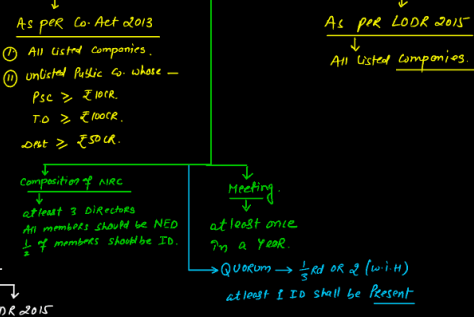 As per Co. Act 2013
(i) All listed companies.
(ii) unlisted Public Co. whose —
PSC ≥ ₹10CR.
T.O ≥ ₹100CR.
Debt ≥ ₹50CR.
As PER LODR 2015
All listed companies.
Composition of NRC
atleast 3 Directors
All members should be NED
1/2 of members should be ID.
Meeting.
atleast once
in a year.
Quorum → 1/3 Rd OR 2 (w.i.H)
atleast 1 ID shall be Present
DR 2015